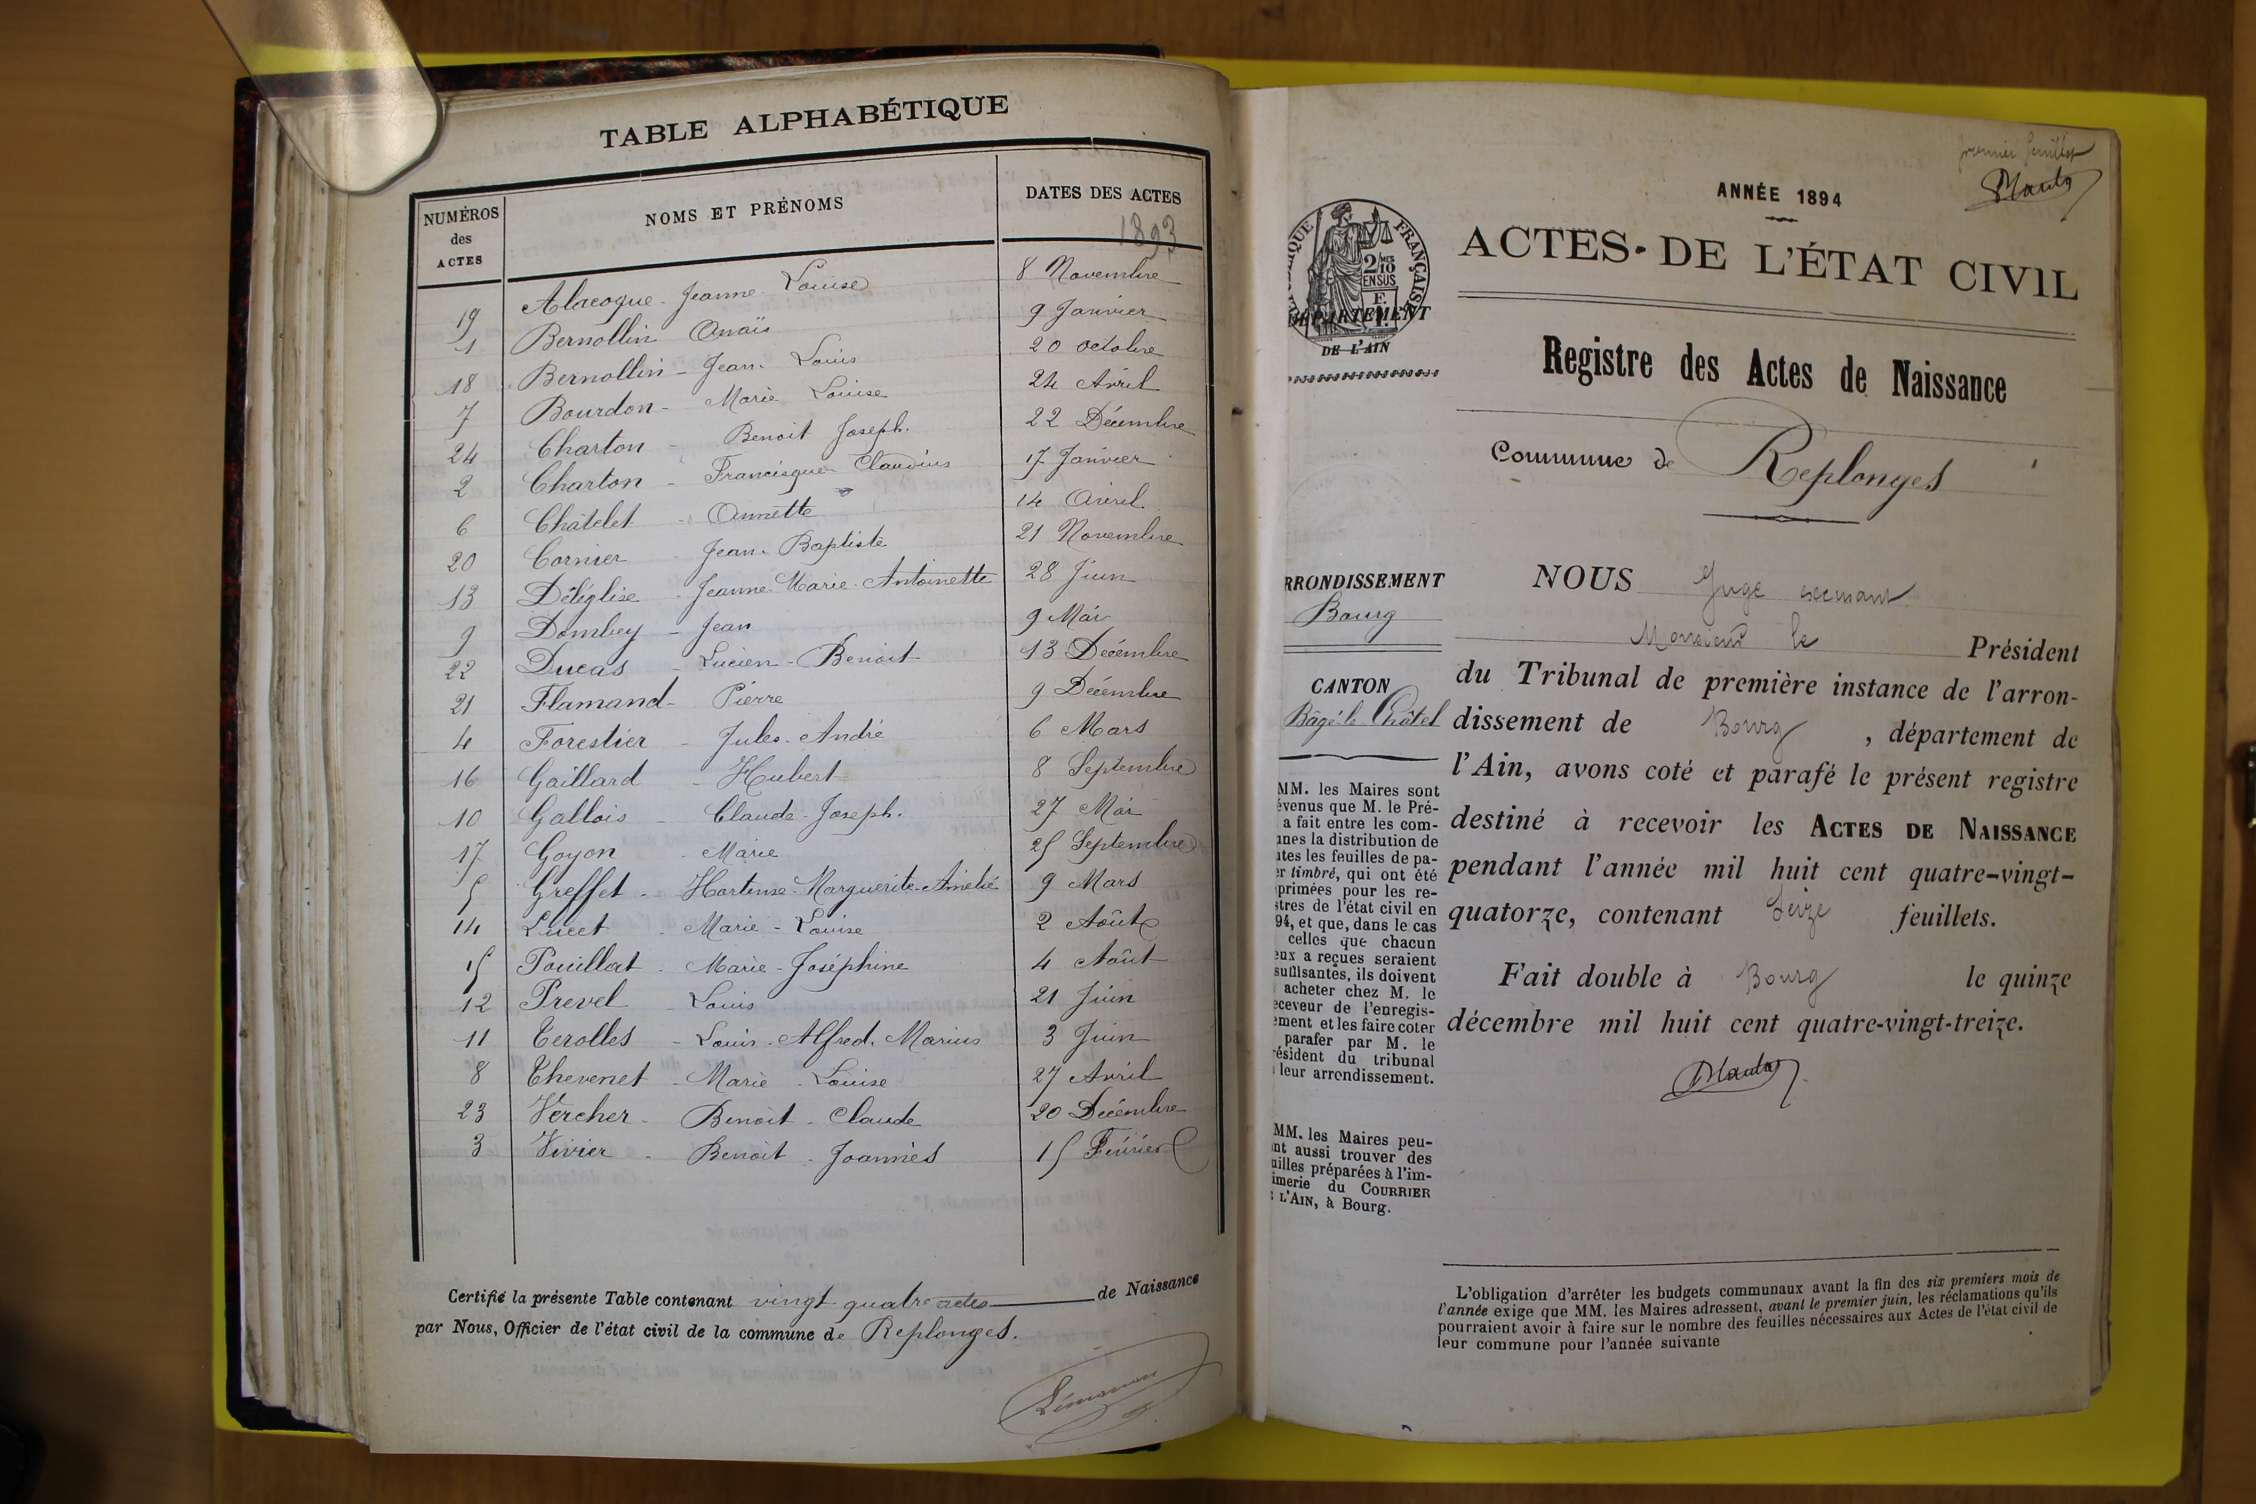 TABLE ALPHABÉTIQUE
NUMÉROS des ACTES NOMS ET PRÉNOMS DATES DES ACTES
1893
19 Alacoque - Jeanne - Louise 8 Novembre
1 Bernollin Anaïs 9 Janvier
18 Bernollin - Jean - Louis 20 octobre
7 Bourdon - Marie Louise 24 Avril
24 Charton - Benoit Joseph. 22 Décembre
2 Charton - Francisque Claudius 17 Janvier
6 Châtelet - Annette 14 Avril
20 Cornier Jean-Baptiste 21 Novembre
13 Déléglise - Jeanne-Marie-Antoinette 28 Juin
9 Dombey - Jean 9 Mai
22 Ducas - Lucien - Benoit 13 Décembre
21 Flamand - Pierre 9 Décembre
4 Forestier - Jules-André 6 Mars
16 Gaillard - Hubert 8 Septembre
10 Gallois - Claude-Joseph. 27 Mai
17 Goyon - Marie 25 Septembre
5 Greffet - Hortense-Marguerite-Amélie 9 Mars
14 Lucet - Marie - Louise 2 Août
15 Pouillat - Marie-Joséphine 4 Août
12 Prevel - Louis 21 Juin
11 Terolles - Louis-Alfred-Marius 3 Juin
8 Thevenet - Marie - Louise 27 Avril
23 Vercher - Benoit - Claude 20 Décembre
3 Vivier - Benoit - Joannès 15 Février
Certifié la présente Table contenant vingt quatre actes de Naissance
par Nous, Officier de l'état civil de la commune de Replonges.
premier feuillet
ANNÉE 1894
ACTES DE L'ÉTAT CIVIL
FRANÇAISE
2/10 EN SUS
DÉPARTEMENT
DE L'AIN
Registre des Actes de Naissance
Commune de Replonges
RRONDISSEMENT
Bourg
CANTON
Bâgé-le-Châtel
MM. les Maires sont
évenus que M. le Pré-
a fait entre les com-
unes la distribution de
utes les feuilles de pa-
er timbré, qui ont été
primées pour les re-
stres de l'état civil en
94, et que, dans le cas
celles que chacun
eux a reçues seraient
suffisantes, ils doivent
acheter chez M. le
eceveur de l'enregis-
ement et les faire coter
parafer par M. le
résident du tribunal
leur arrondissement.
MM. les Maires peu-
nt aussi trouver des
uilles préparées à l'im-
imerie du COURRIER
L'AIN, à Bourg.
NOUS Juge
Monsieur le Président
du Tribunal de première instance de l'arron-
dissement de Bourg, département de
l'Ain, avons coté et parafé le présent registre
destiné à recevoir les ACTES DE NAISSANCE
pendant l'année mil huit cent quatre-vingt-
quatorze, contenant Seize feuillets.
Fait double à Bourg le quinze
décembre mil huit cent quatre-vingt-treize.
L'obligation d'arrêter les budgets communaux avant la fin des six premiers mois de
l'année exige que MM. les Maires adressent, avant le premier juin, les réclamations qu'ils
pourraient avoir à faire sur le nombre des feuilles nécessaires aux Actes de l'état civil de
leur commune pour l'année suivante